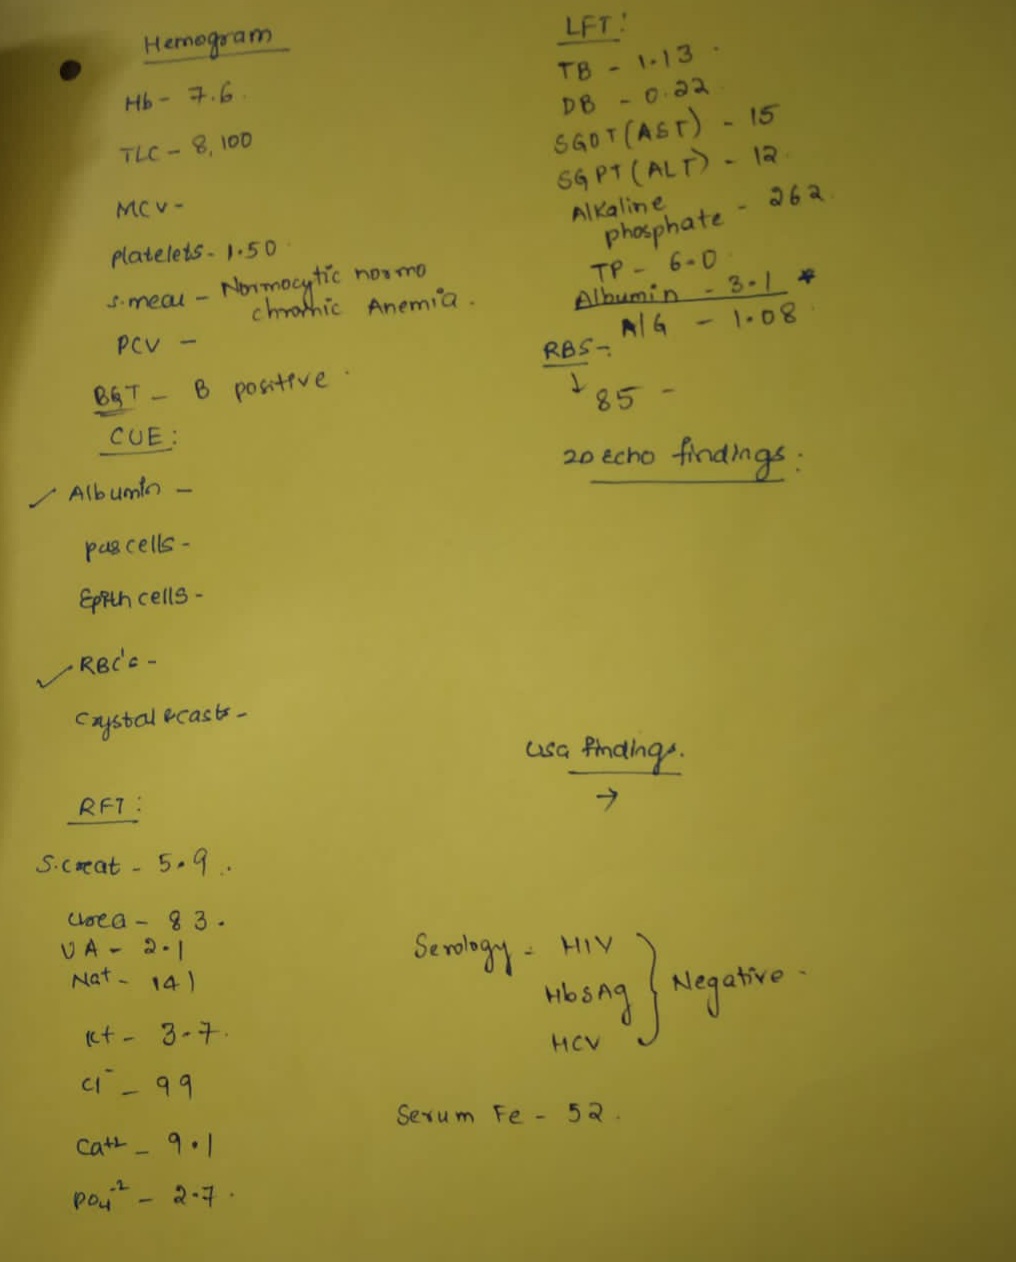 Hemogram
Hb - 7.6
TLC - 8,100
MCV -
platelets - 1.50
s.mear - Normocytic normo
chromic Anemia.
PCV -
BGT - B positive
CUE:
Albumin -
pus cells -
Epith cells -
RBC's -
Crystal & casts -
RFT:
S.creat - 5.9.
Urea - 83.
UA - 2.1
Na+ - 141
K+ - 3.7.
Cl- - 99
Ca++ - 9.1
PO4-2 - 2.7.
LFT:
TB - 1.13
DB - 0.22
SGOT (AST) - 15
SGPT (ALT) - 12
Alkaline
phosphate - 262
TP - 6.0
Albumin - 3.1 *
A/G - 1.08
RBS -
↓ 85 -
2D Echo findings:
USG findings.
→
Serology - HIV
HbsAg } Negative -
HCV
Serum Fe - 52.